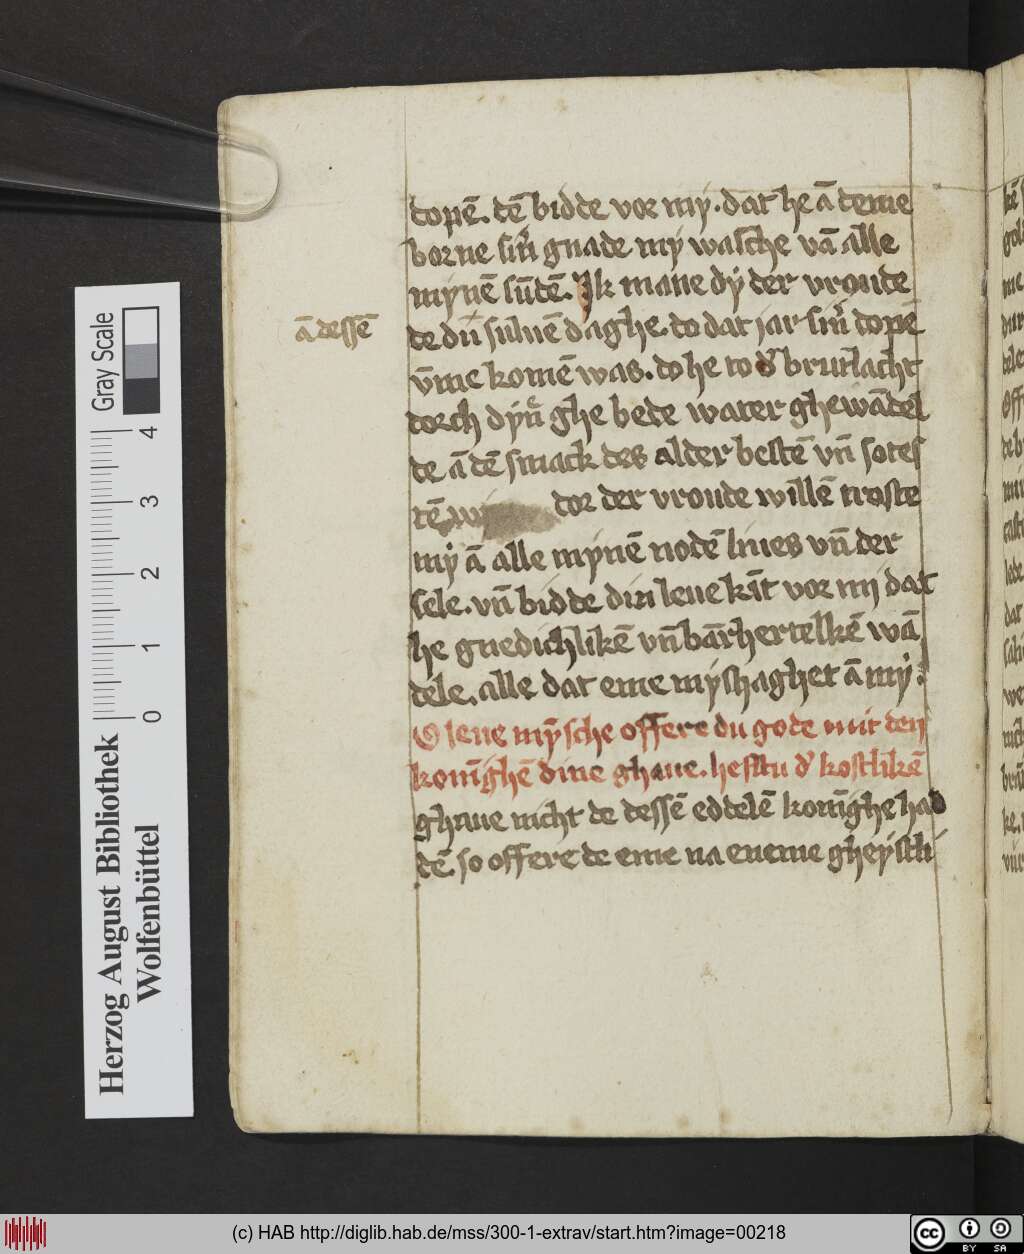 dopē. dē bidde vor my. dat he ā deme
borne sin̄ gnade my wasche vā alle
mynē sūdē. Ik mane dy der vroude
de du
ā dessē
suluē daghe. do dat jar sin̄ dopē
v̄me komē was. do he to d' brutlacht
dorch dyn̄ ghe bede water ghewādel
de ā dē smack des alder bestē vn̄ sotes
tē dor der vroude willē troste
my ā alle mynē nodē liues vn̄ der
sele. vn̄ bidde din leue kīt vor mi dat
he gnedichlikē vn̄ barhertelkē wā
dele. alle dat eme myshaghet ā my.
O leue mȳsche offere du gode mit den
konīghē dine ghaue. hefstu d' kostlikē
ghaue nicht de dessē eddelē konīghe had
dē. so offere de eme na eneme gheystli
Gray Scale
4
3
2
1
0
Herzog August Bibliothek
Wolfenbüttel
(c) HAB http://diglib.hab.de/mss/300-1-extrav/start.htm?image=00218
cc BY SA